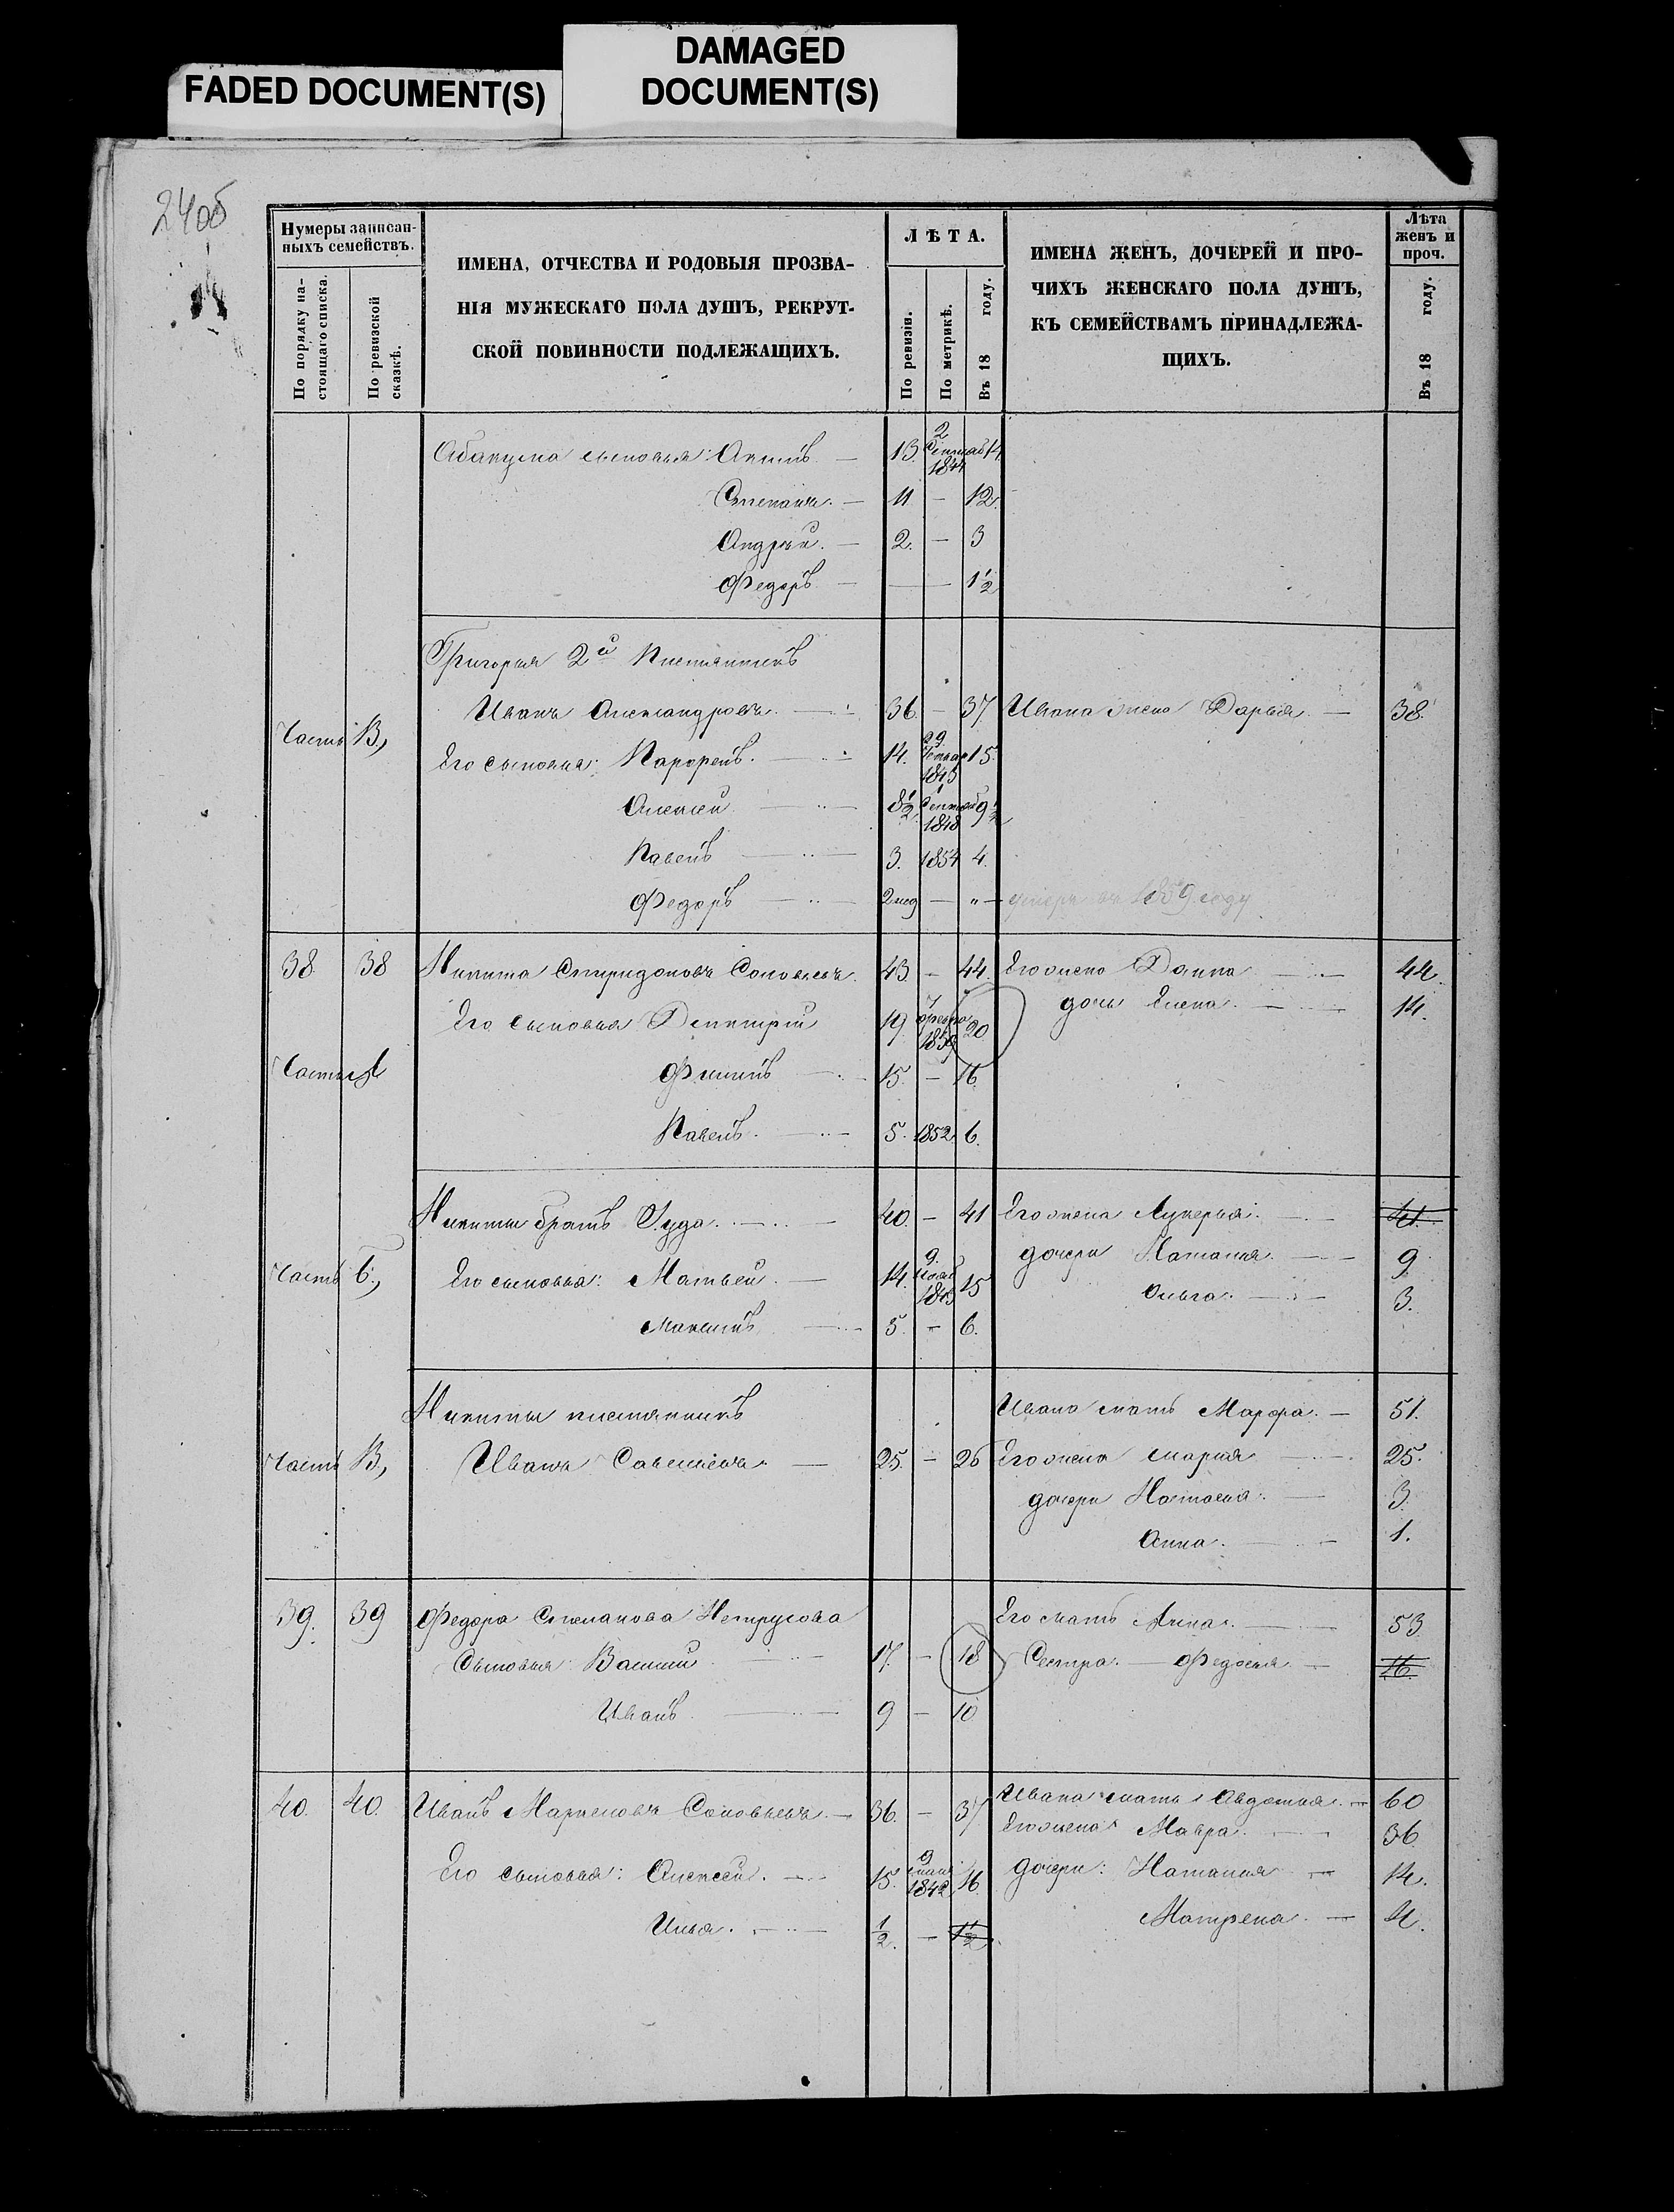 FADED DOCUMENT(S)
DAMAGED
DOCUMENT(S)
24об
Нумеры записан-
ныхъ семействъ.
По порядку на-
стоящаго списка.
По ревизской
сказкѣ.
ИМЕНА, ОТЧЕСТВА И РОДОВЫЯ ПРОЗВА-
НІЯ МУЖЕСКАГО ПОЛА ДУШЪ, РЕКРУТ-
СКОЙ ПОВИННОСТИ ПОДЛЕЖАЩИХЪ.
ЛѢТА.
По ревизіи.
По метрикѣ.
Въ 18 году.
ИМЕНА ЖЕНЪ, ДОЧЕРЕЙ И ПРО-
ЧИХЪ ЖЕНСКАГО ПОЛА ДУШЪ,
КЪ СЕМЕЙСТВАМЪ ПРИНАДЛЕЖА-
ЩИХЪ.
Лѣта
женъ и
проч.
Въ 18 году.
Абакума сыновья: Акимъ 13 2 Сентяб 1844 14
Степанъ. 11 12.
Андрей. 2. 3
Федоръ 1½
Григорья 2й Племянникъ
Иванъ Александровъ. 36. 37 Ивана жена Дарья 38.
Часть В,
Его сыновья: Парфенъ. 14. 29 1843 15.
Алексей 8½ 1 Сентяб 1848 9½
Павелъ 3. 1854 4.
Федоръ 2 нед " умеръ въ 1859 году
38 38 Никита Спиридоновъ Соловьевъ. 43 44. Его жена Дапна 44.
дочь Елена. 14.
Его сыновья Дмитрій 19. 20
Часть А
Филипъ 15. 16.
Павелъ. 5. 1852. 6.
Никиты братъ Іуда. 40. 41 Его жена Лукерья. 41.
дочери Наталия. 9.
Часть Б, Его сыновья: Матвей. 14. 9. 1843 15
Ольга. 3.
Максимъ 5. 6.
Никиты племянникъ
Ивана мать Марфа. 51.
Часть В, Иванъ Савельевъ. 25. 26 Его жена Мария 25.
дочери Настасья. 3.
Анна. 1.
39. 39 Федора Степанова Петрусова
Его мать Анна. 53
Сыновья Василий 17. 18 Сестра Федосья 16.
Иванъ 9 10
40. 40. Иванъ Маркеловъ Соловьевъ. 36. 37 Ивана мать Авдотья. 60
Его жена Мавра. 36
Его сыновья: Алексей. 15. 9 1842 16 дочери: Наталия 14.
Илья. ½. 1½ Матрена. 4.